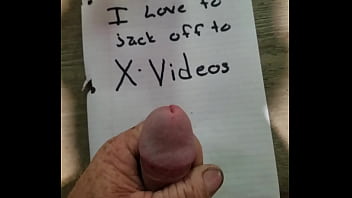 I Love to
jack off to
X. Videos